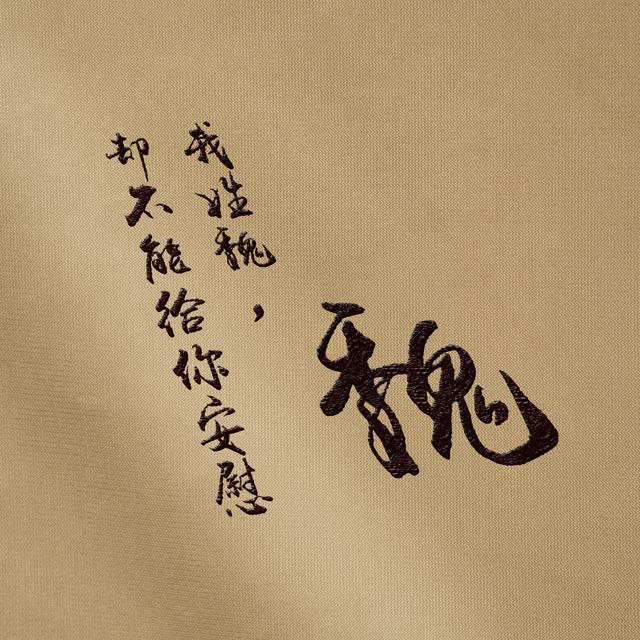 魏
我姓魏，
却不能给你安慰